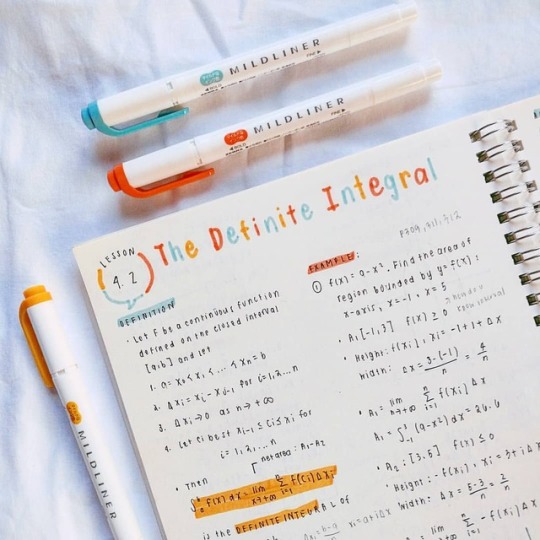 MILDLINER
MILDLINER
MILDLINER
LESSON
4.2
The Definite Integral
P309, 311, 312
DEFINITION
• Let f be a continuous function
defined on the closed interval
[a,b] and let
1. a = x₀ < x₁ ... < xₙ = b
2. Δxᵢ = xᵢ - xᵢ₋₁ for i=1,2...n
3. Δxᵢ → 0 as n → +∞
4. Let ci best xᵢ₋₁ ≤ cᵢ ≤ xᵢ for
i = 1, 2, ... n
net area: A₁-A₂
• Then
∫ₐᵇ f(x) dx = lim x→+∞ Σ i=1 n f(cᵢ) Δxᵢ
is the DEFINITE INTEGRAL of
EXAMPLE:
① f(x) = 9 - x². Find the area of
region bounded by y = f(x):
x-axis, x = -1, x = 5
• A₁ [-1,3] f(x) ≥ 0
know interval
• Height: f(xᵢ), xᵢ = -1 + i Δx
Width: Δx = 3-(-1) / n = 4/n
• A₁ = lim n→+∞ Σ i=1 n f(xᵢ) Δx
A₁ = ∫₋₁³ (9-x²) dx = 26.6
• A₂: [3,5] f(x) ≤ 0
Height: -f(xᵢ), xᵢ = 3+iΔx
Width: Δx = 5-3 / n = 2/n
lim Σ -f(xᵢ)